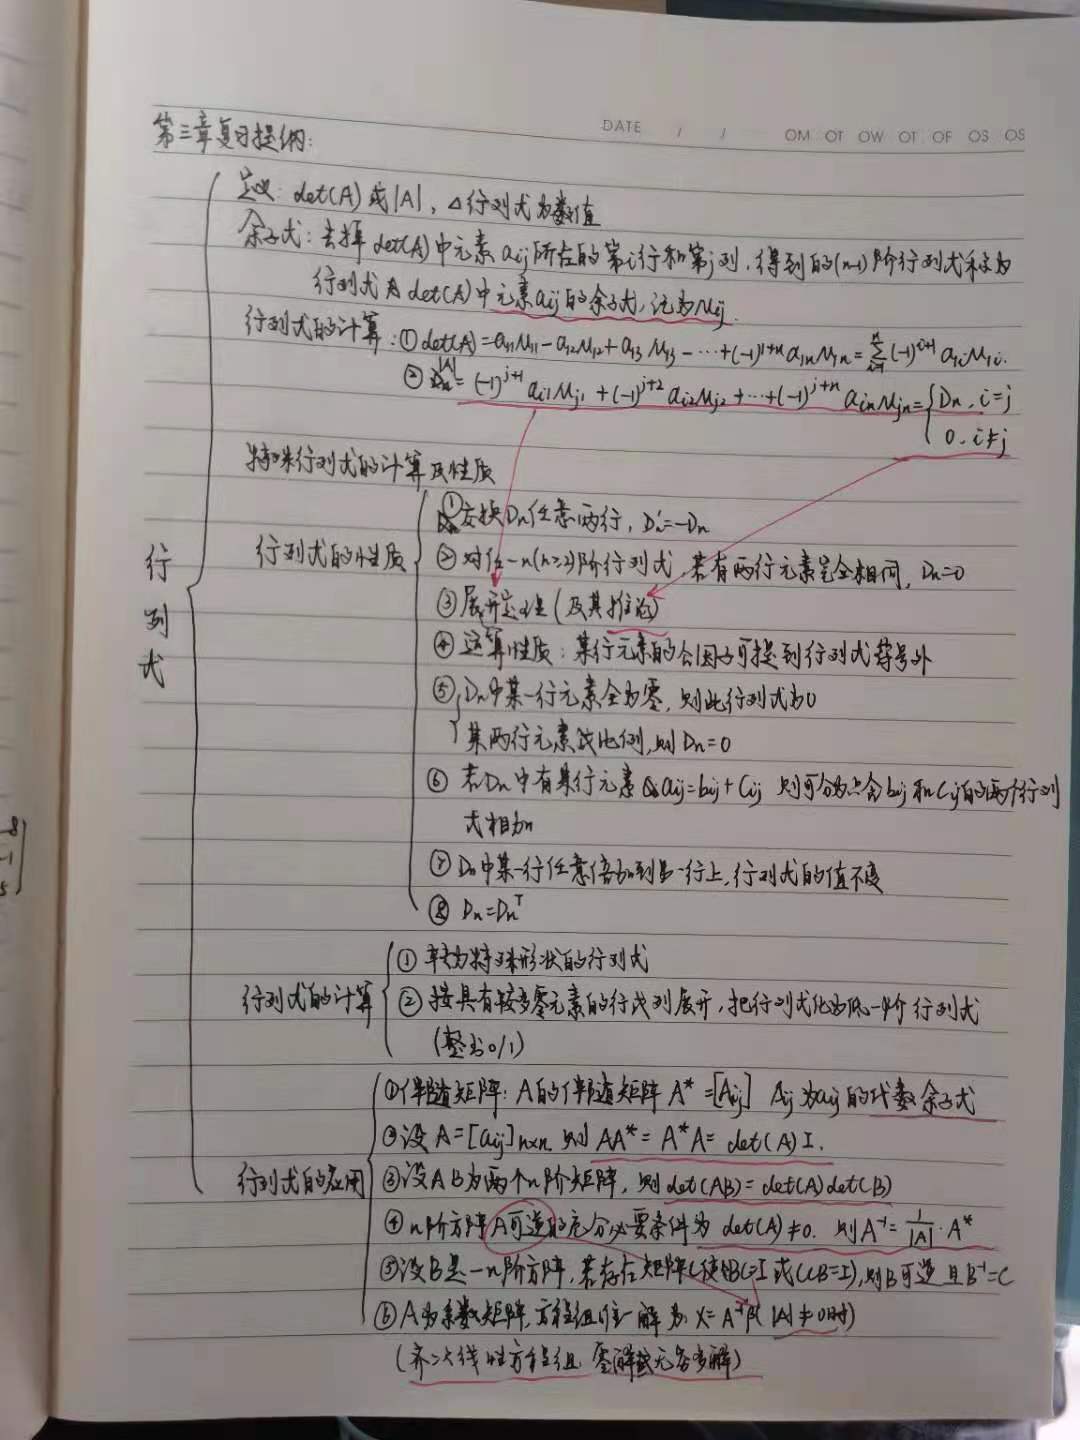 DATE / / OM OT OW OT OF OS OS
第三章复习提纲:
行列式
定义: det(A) 或|A|, △行列式为数值
余子式: 去掉 det(A)中元素 aij所在的第i行和第j列, 得到的(n-1)阶行列式称为
行列式 det(A)中元素aij的余子式, 记为Mij.
行列式的计算: ① det(A)=a11M11-a12M12+a13M13-…+(-1)^{1+n}a1nM1n=∑(-1)^{i+1}a1iM1i.
② =(-1)^{j+1}ai1Mj1+(-1)^{j+2}ai2Mj2+…+(-1)^{j+n}ainMjn={Dn, i=j
0, i≠j
特殊行列式的计算及性质
行列式的性质
①交换Dn任意两行, Dn'=-Dn
②对任一n(n≥2)阶行列式, 若有两行元素完全相同, Dn=0
③展开定理(及其推论)
④运算性质: 某行元素的公因子可提到行列式符号外
⑤{Dn中某一行元素全为零, 则此行列式为0
某两行元素成比例, 则 Dn=0
⑥若Dn中有某行元素 aij=bij+cij 则可分为只含bij和cij的两个行列
式相加
⑦Dn中某一行任意倍加到另一行上, 行列式的值不变
⑧ Dn=Dn^T
行列式的计算
①转为特殊形状的行列式
②按具有较多零元素的行或列展开, 把行列式化为低一阶行列式
(整出0/1)
行列式的应用
①伴随矩阵: A的伴随矩阵 A*=[Aij] Aij为aij的代数余子式
②设 A=[aij]n×n 则 AA*=A*A=det(A)I.
③设A B为两个n阶矩阵, 则det(AB)=det(A)det(B)
④n阶方阵A可逆的充分必要条件为 det(A)≠0. 则A^{-1}=1/|A|·A*
⑤设B是一n阶方阵, 若存在矩阵C使得BC=I 或(CB=I), 则B可逆且B^{-1}=C
⑥A为系数矩阵, 方程组唯一解为: X=A^{-1}β(|A|≠0时)
(齐次线性方程组 零解或无穷多解)